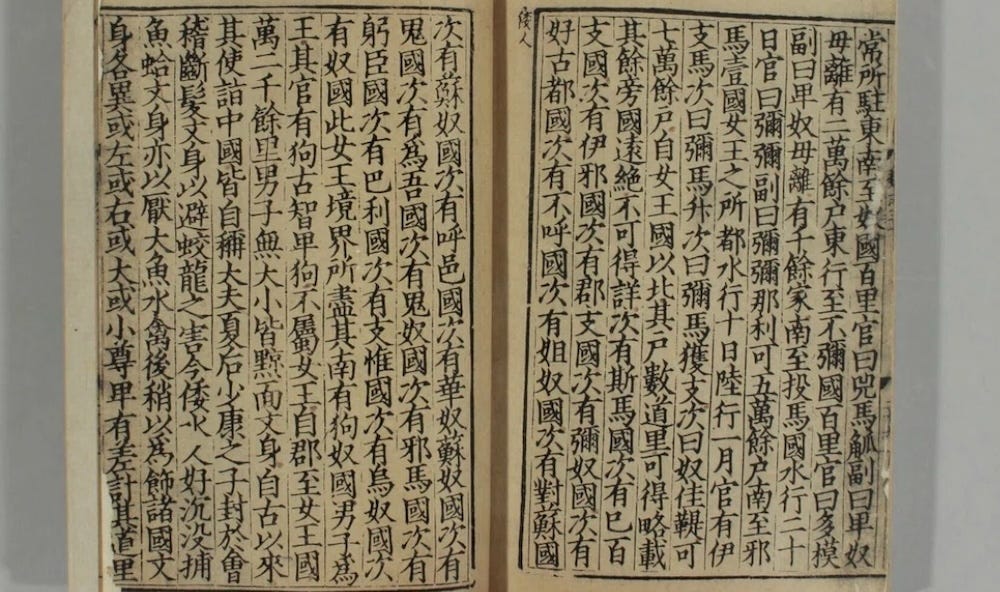 倭人
常所駐東南至奴國百里官曰兕馬觚副曰卑奴
毋離有二萬餘戶東行至不彌國百里官曰多模
副曰卑奴毋離有千餘家南至投馬國水行二十
日官曰彌彌副曰彌彌那利可五萬餘戶南至邪
馬壹國女王之所都水行十日陸行一月官有伊
支馬次曰彌馬升次曰彌馬獲支次曰奴佳鞮可
七萬餘戶自女王國以北其戶數道里可得略載
其餘旁國遠絶不可得詳次有斯馬國次有巳百
支國次有伊邪國次有郡支國次有彌奴國次有
好古都國次有不呼國次有姐奴國次有對蘇國
次有蘇奴國次有呼邑國次有華奴蘇奴國次有
鬼國次有爲吾國次有鬼奴國次有邪馬國次有
躬臣國次有巴利國次有支惟國次有烏奴國次
有奴國此女王境界所盡其南有狗奴國男子爲
王其官有狗古智卑狗不屬女王自郡至女王國
萬二千餘里男子無大小皆黥面文身自古以來
其使詣中國皆自稱大夫夏后少康之子封於會
稽斷髮文身以避蛟龍之害今倭水人好沉没捕
魚蛤文身亦以厭大魚水禽後稍以爲飾諸國文
身各異或左或右或大或小尊卑有差計其道里